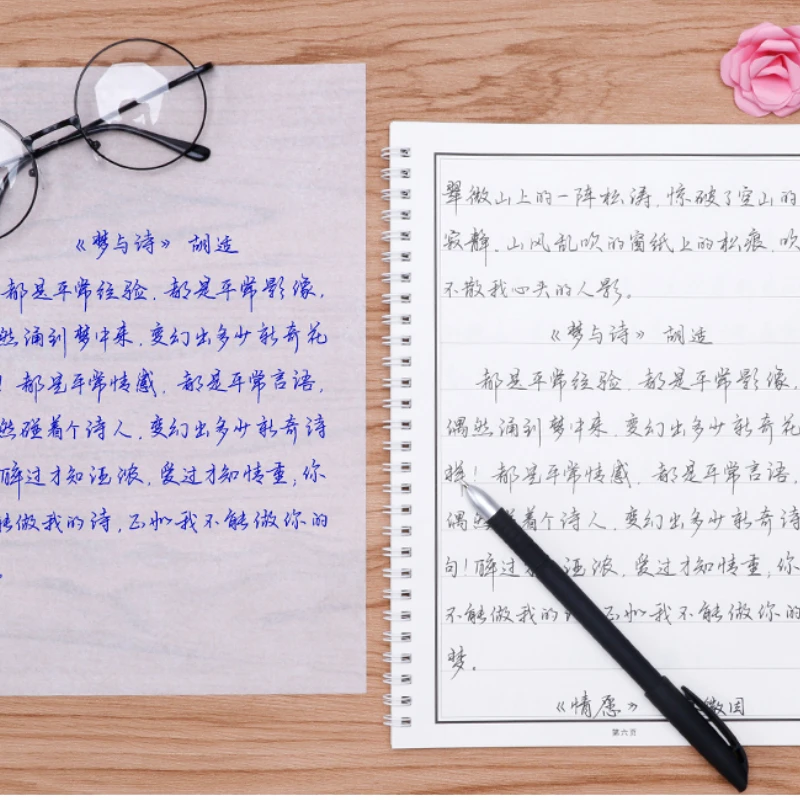 《梦与诗》 胡适
都是平常经验，都是平常影像，
然涌到梦中来，变幻出多少新奇花
！都是平常情感，都是平常言语，
然碰着个诗人，变幻出多少新奇诗
醉过才知酒浓，爱过才知情重；你
能做我的诗，正如我不能做你的
。
翠微山上的一阵松涛，惊破了空山的
寂静。山风乱吹的窗纸上的松痕，吹
不散我心头的人影。
《梦与诗》 胡适
都是平常经验，都是平常影像，
偶然涌到梦中来，变幻出多少新奇花
样！都是平常情感，都是平常言语，
偶然着个诗人，变幻出多少新奇诗
句！醉过酒浓，爱过才知情重；你
不能做我的，正如我不能做你的
梦。
《情愿》 因
第六页